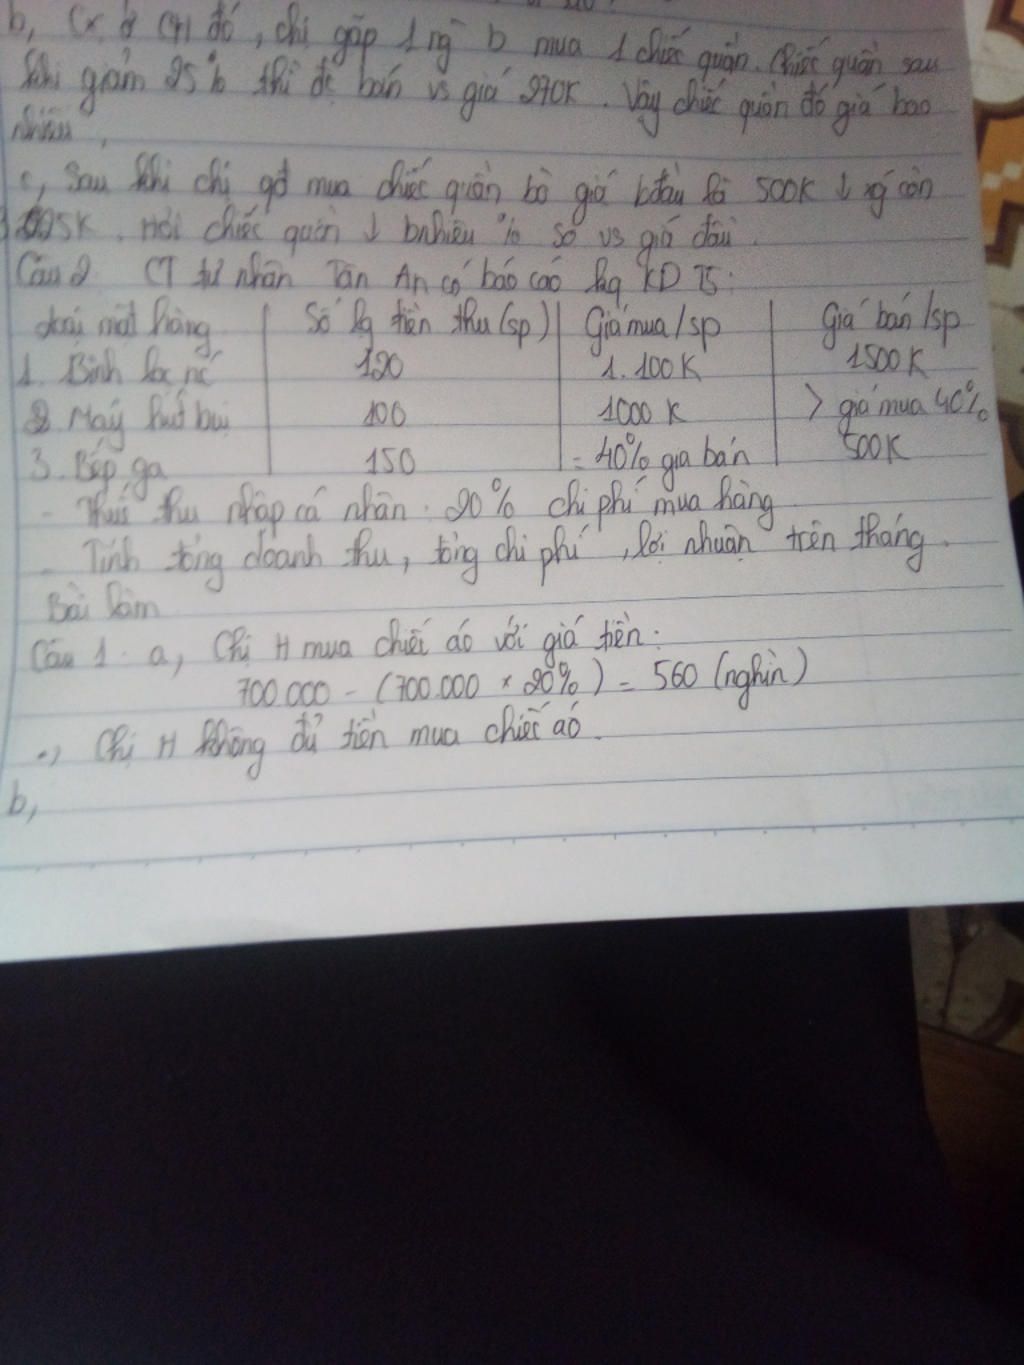 b, Cx ở CH đó, chị gặp 1 ng b mua 1 chiếc quần. Chiếc quần sau
khi giảm 25% thì đc bán vs giá 270K. Vậy chiếc quần đó giá bao
nhiêu,
c, Sau khi chị gđ mua chiếc quần bò giá bđầu là 500K ↓ xg còn
095K. Hỏi chiếc quần ↓ bnhiêu % so vs giá đầu.
Câu 2 CT tư nhân Tân An có báo cáo hq KD T5:
Loại mặt hàng Số lg tiên thu (sp) Giá mua/sp Giá bán/sp
1. Bình lọc nc 120 1.100K 1500K
2. Máy hút bụi 100 1000K > giá mua 40%
3. Bếp ga 150 = 40% gia bán 500K
- Thuế thu nhập cá nhân: 20% chi phí mua hàng
- Tính tổng doanh thu, tổng chi phí, lợi nhuận trên tháng.
Bài làm
Câu 1. a, Chị H mua chiếc áo với giá tiền:
700.000 - (700.000 × 20%) = 560 (nghìn)
Chị H không đủ tiền mua chiếc áo.
b,